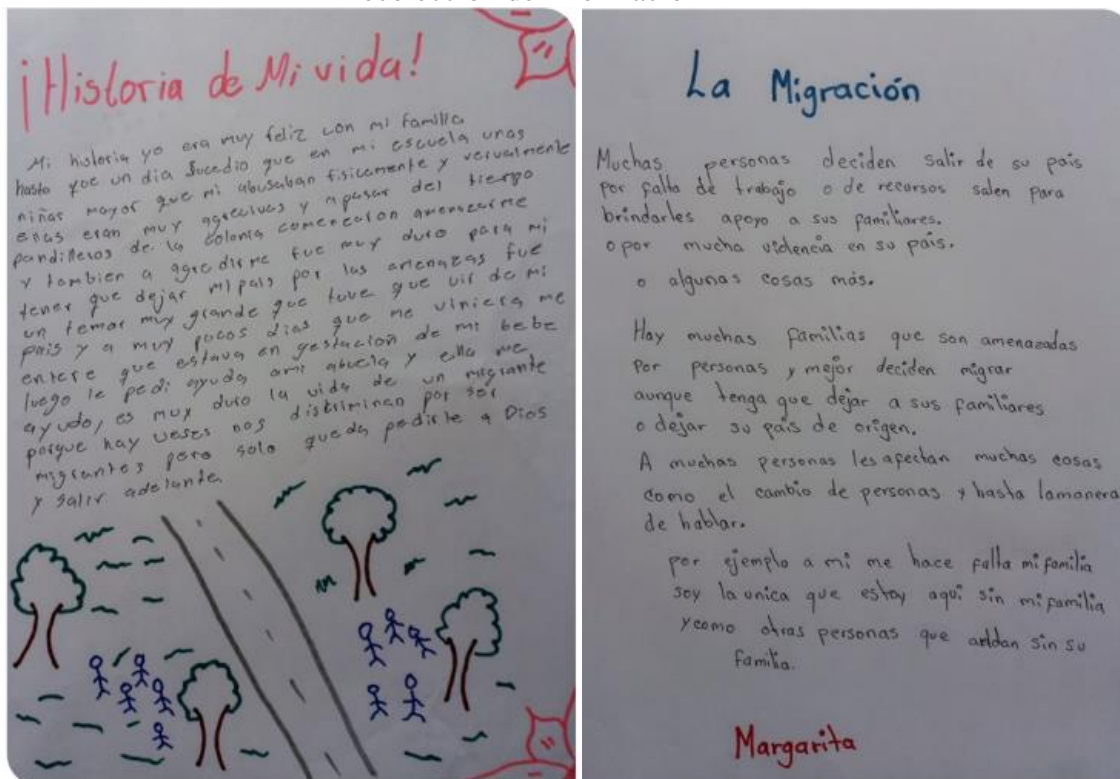 ¡Historia de Mi vida!
Mi historia yo era muy feliz con mi familia
hasta que un dia Sucedio que en mi escuela unas
niñas mayor que mi abusaban fisicamente y verualmente
enas eran muy agrecivas y apasar del tiempo
pandilleros de la colonia comenzaron amenazarme
y tambien a agredirme fue muy duro para mi
tener que dejar mi pais por las amenazas fue
un temor muy grande que tuve que uir de mi
pais y a muy pocos dias que me viniera me
entere que estava en gestacion de mi bebe
luego le pedi ayuda ami abuela y ella me
ayudo, es muy duro la vida de un migrante
porque hay veses nos diskriminan por ser
migrantes pero solo queda pedirle a Dios
y salir adelante.
La Migración
Muchas personas deciden salir de su pais
por falta de trabajo o de recursos salen para
brindarles apoyo a sus familiares.
o por mucha violencia en su pais.
o algunas cosas más.
Hay muchas familias que son amenazadas
Por personas y mejor deciden migrar
aunque tenga que dejar a sus familiares
o dejar su pais de origen.
A muchas personas les afectan muchas cosas
como el cambio de personas y hasta lamanera
de hablar.
por ejemplo a mi me hace falta mi familia
soy la unica que estoy aqui sin mi familia
y como otras personas que andan sin su
familia.
Margarita